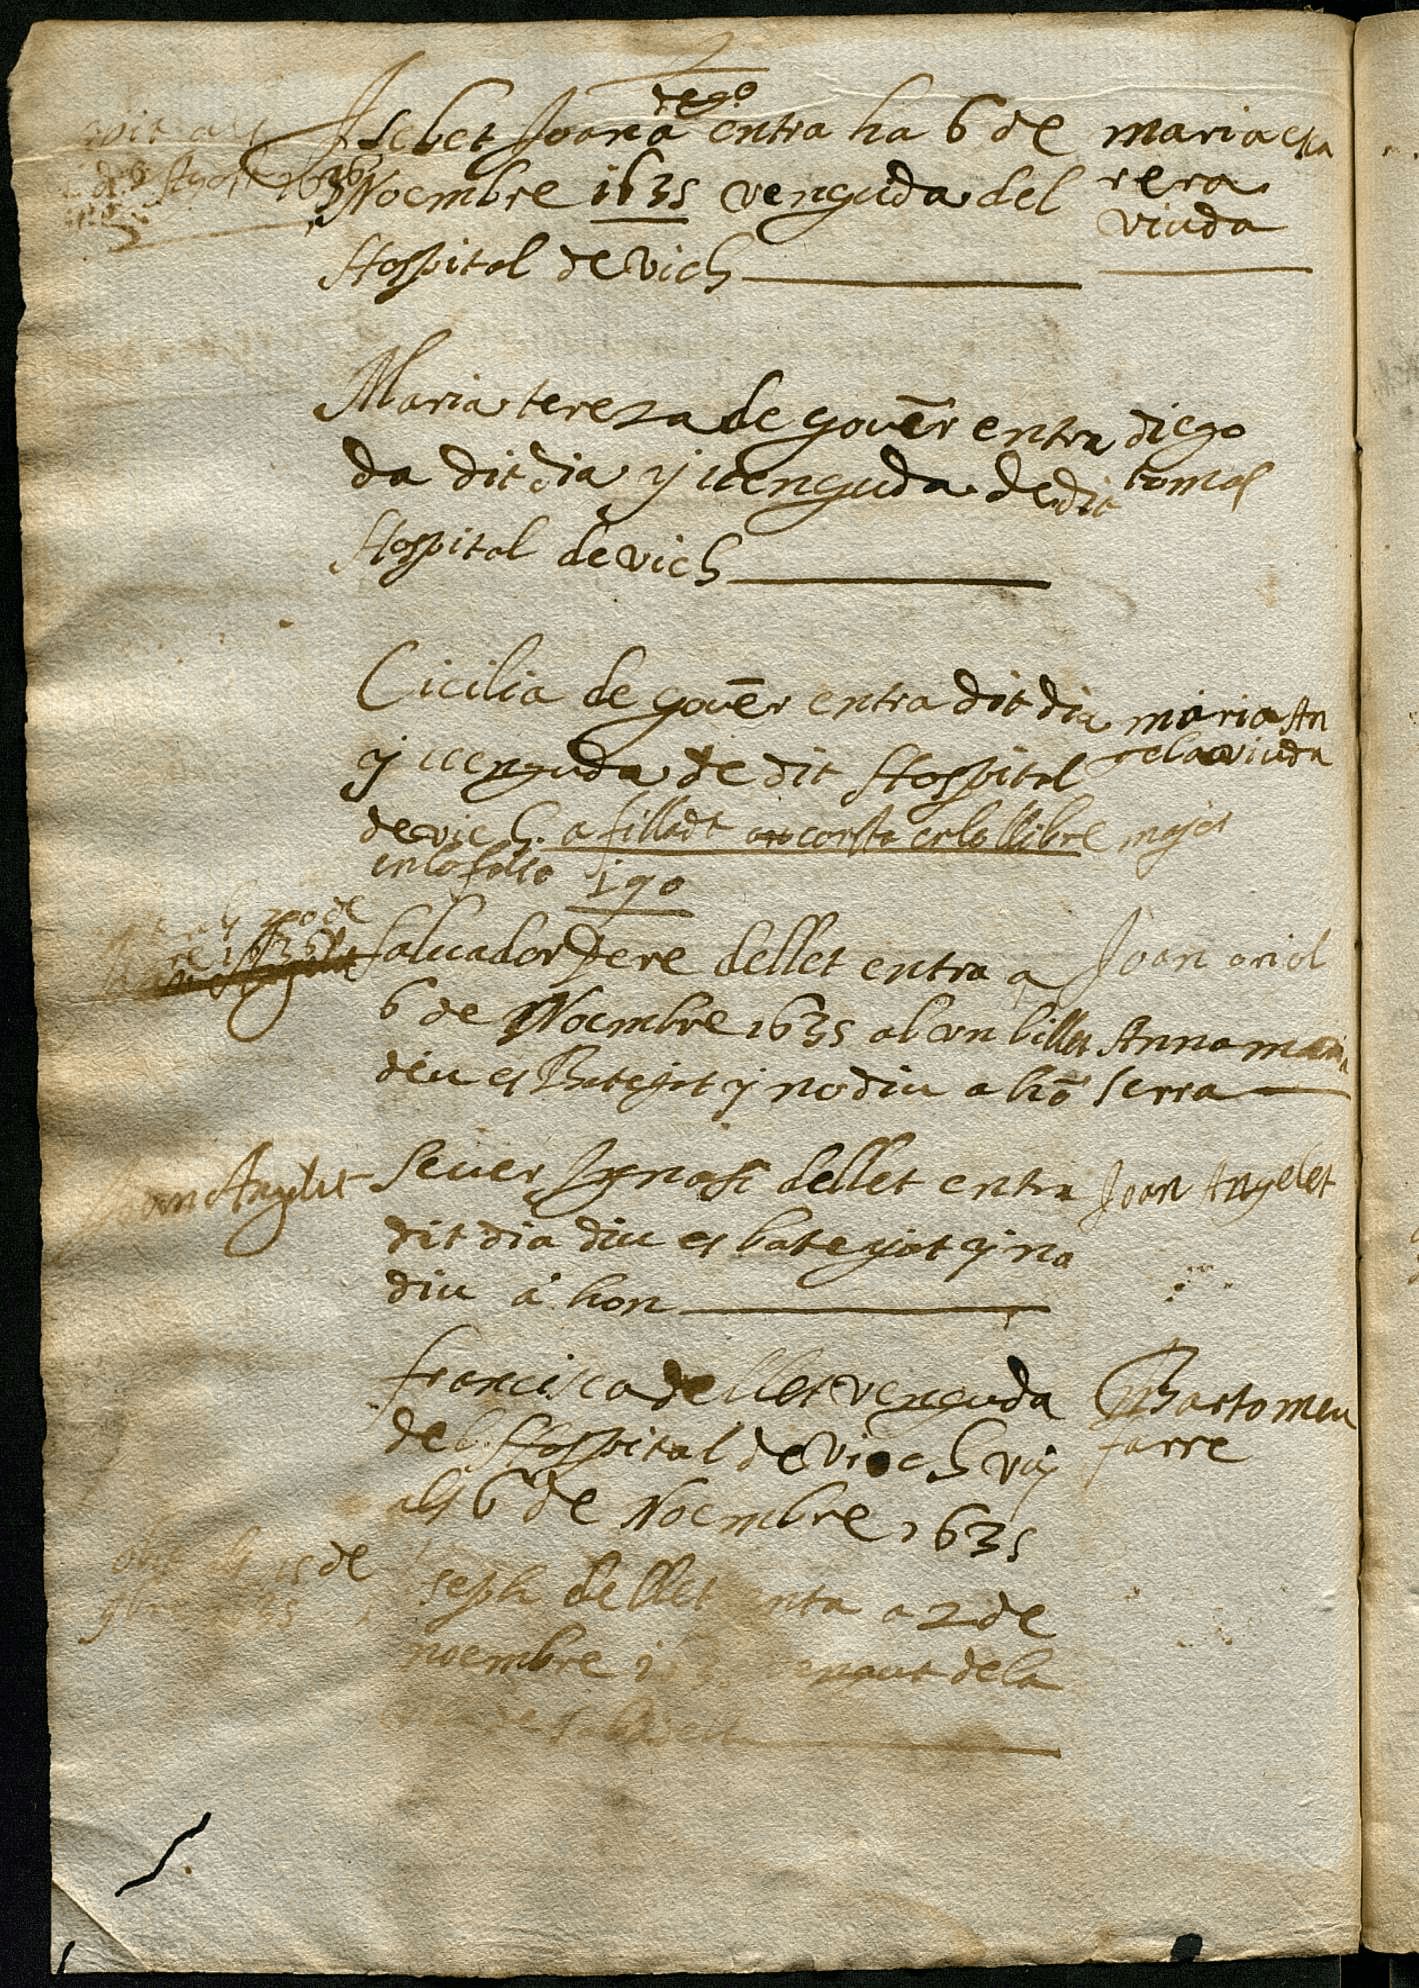 Isebet Joana entra ha 6 de
Noembre 1635 venguda del
Hospital de vich
maria esta
rera
viuda
Maria tereza de gouēr entra
da dit dia y uenguda de dit
Hospital de vich
diego
tomas
Cicilia de gouēr entra dit dia
y uenguda de dit Hospital
de vich. afilladt consta en lo llibre major
en lo folio 190
maria An
gela viuda
Saluador Pere dellet entra a
6 de Noembre 1635 ab un billet
diu es Batejat y no diu a hō
Joan oriol
Anna maria
Serra
Joan Angelet
Seuer Ignasi dellet entra
dit dia diu es batejat y no
diu á hon
Joan Angelet
francisca dellet venguda
del Hospital de Vich vuy
als 6 de Noembre 1635
Bartomeu
farre
als 15 de
seph dellet enta a 2 de
noembre vengut de la